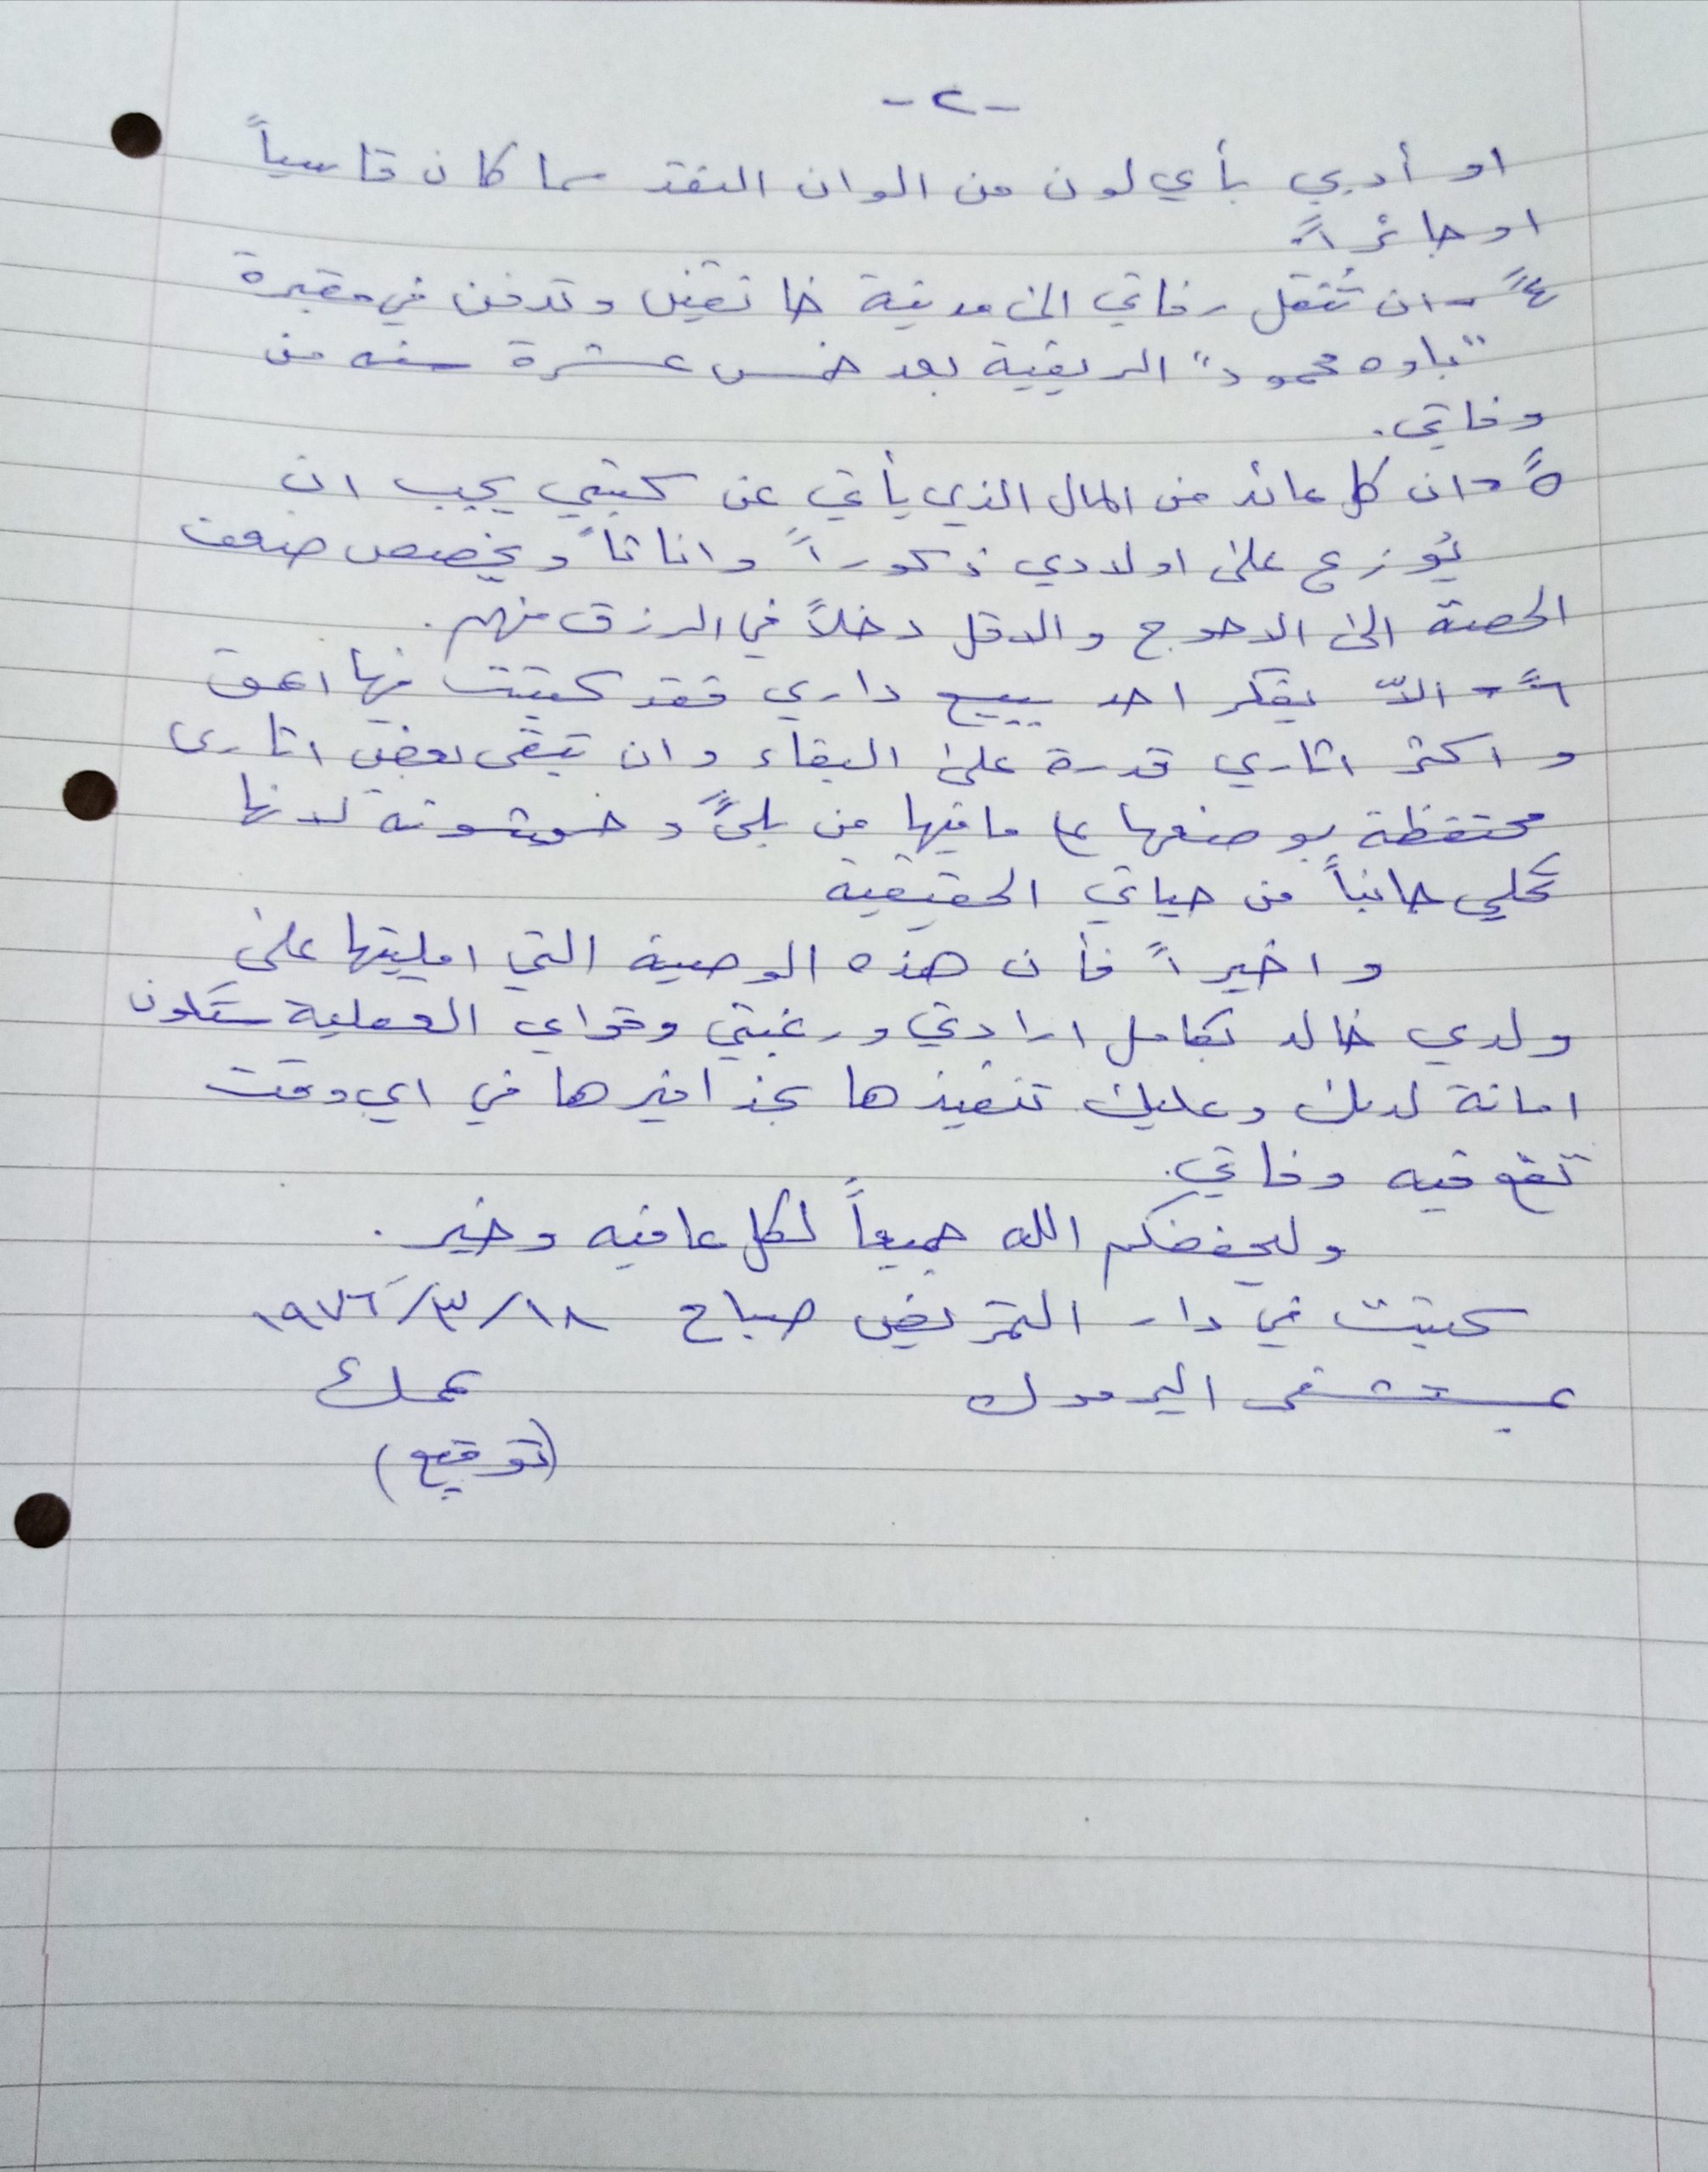 -٢-
او أدبي بأي لون من الوان النقد مهما كان قاسياً
او جائراً.
٤ً- ان تُنقل رفاتي الى مدينة خانقين وتدفن في مقبرة
"باوه محمود" الريفية بعد خمس عشرة سنه من
وفاتي.
٥ً- ان كل عائد من المال الذي يأتي عن كتبي يجب ان
يُوزع على اولادي ذكوراً واناثاً ويخصص ضعف
الحصة الى الاحوج والاقل دخلاً في الرزق منهم.
٦ً- الاّ يفكر احد ببيع داري فقد كتبت فيها اعمق
واكثر اثاري قدرة على البقاء وان تبقى بعض اثاري
محتفظة بوضعها على مافيها من بلىً وخشونه لانها
تحلي جانباً من حياتي الحقيقية
واخيراً فأن هذه الوصية التي امليتها على
ولدي خالد بكامل ارادتي ورغبتي وقواي العقلية ستكون
امانة لديك وعليك تنفيذها بحذافيرها في اي وقت
تقع فيه وفاتي.
وليحفضكم الله جميعاً لكل عافيه وخير.
كتبت في دار التمريض صباح ١٨/٣/١٩٧٦
بمستشفى اليرموك عمك
(توقيع)